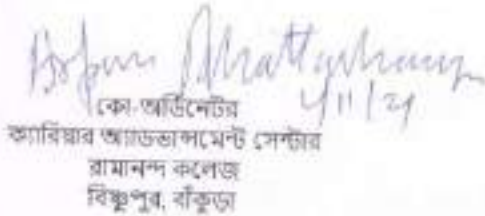 Bhattacharyya
4/11/21
কো-অর্ডিনেটর
ক্যারিয়ার অ্যাডভান্সমেন্ট সেন্টার
রামানন্দ কলেজ
বিষ্ণুপুর, বাঁকুড়া